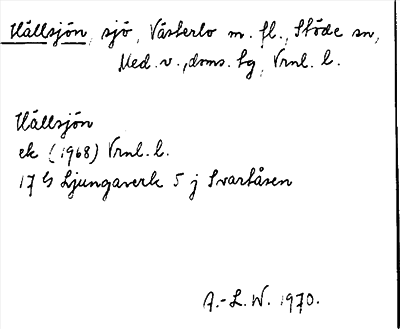 Hällsjön, sjö, Västerlo m. fl., Stöde sn,
Med. v., doms. tg, Vrnl. l.
Hällsjön
ek (1968) Vrnl. l.
17 G Ljungaverk 5 j Svartåsen
A.-L. W. 1970.